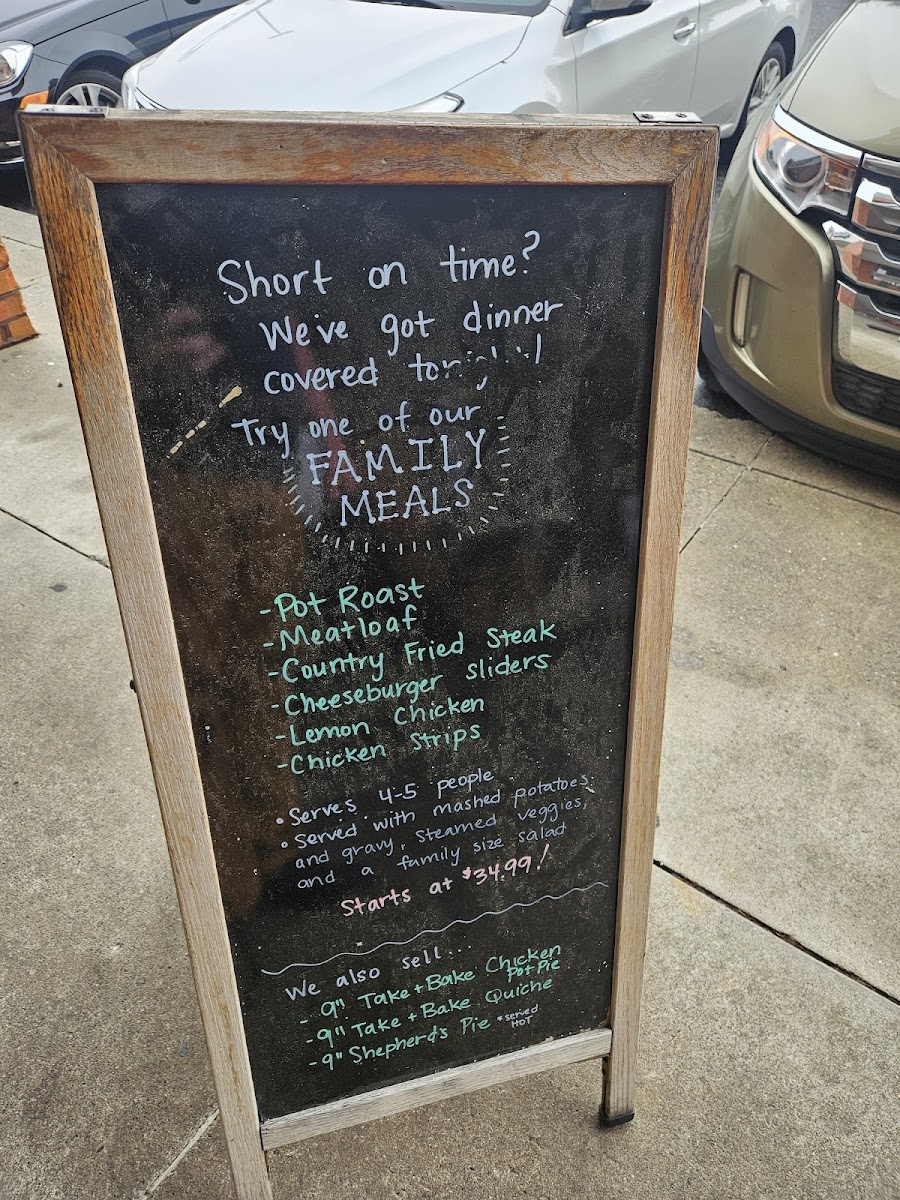 Short on time?
We've got dinner
covered
Try one of our
FAMILY
MEALS
-Pot Roast
-Meatloaf
-Country Fried Steak
-Cheeseburger sliders
-Lemon Chicken
-Chicken Strips
• Serves 4-5 people
• Served with mashed potatoes
and gravy, steamed veggies,
and a family size salad
Starts at $34.99!
We also sell...
- 9" Take + Bake Chicken
Pot Pie
- 9" Take + Bake Quiche
- 9" Shepherd's Pie *served
HOT